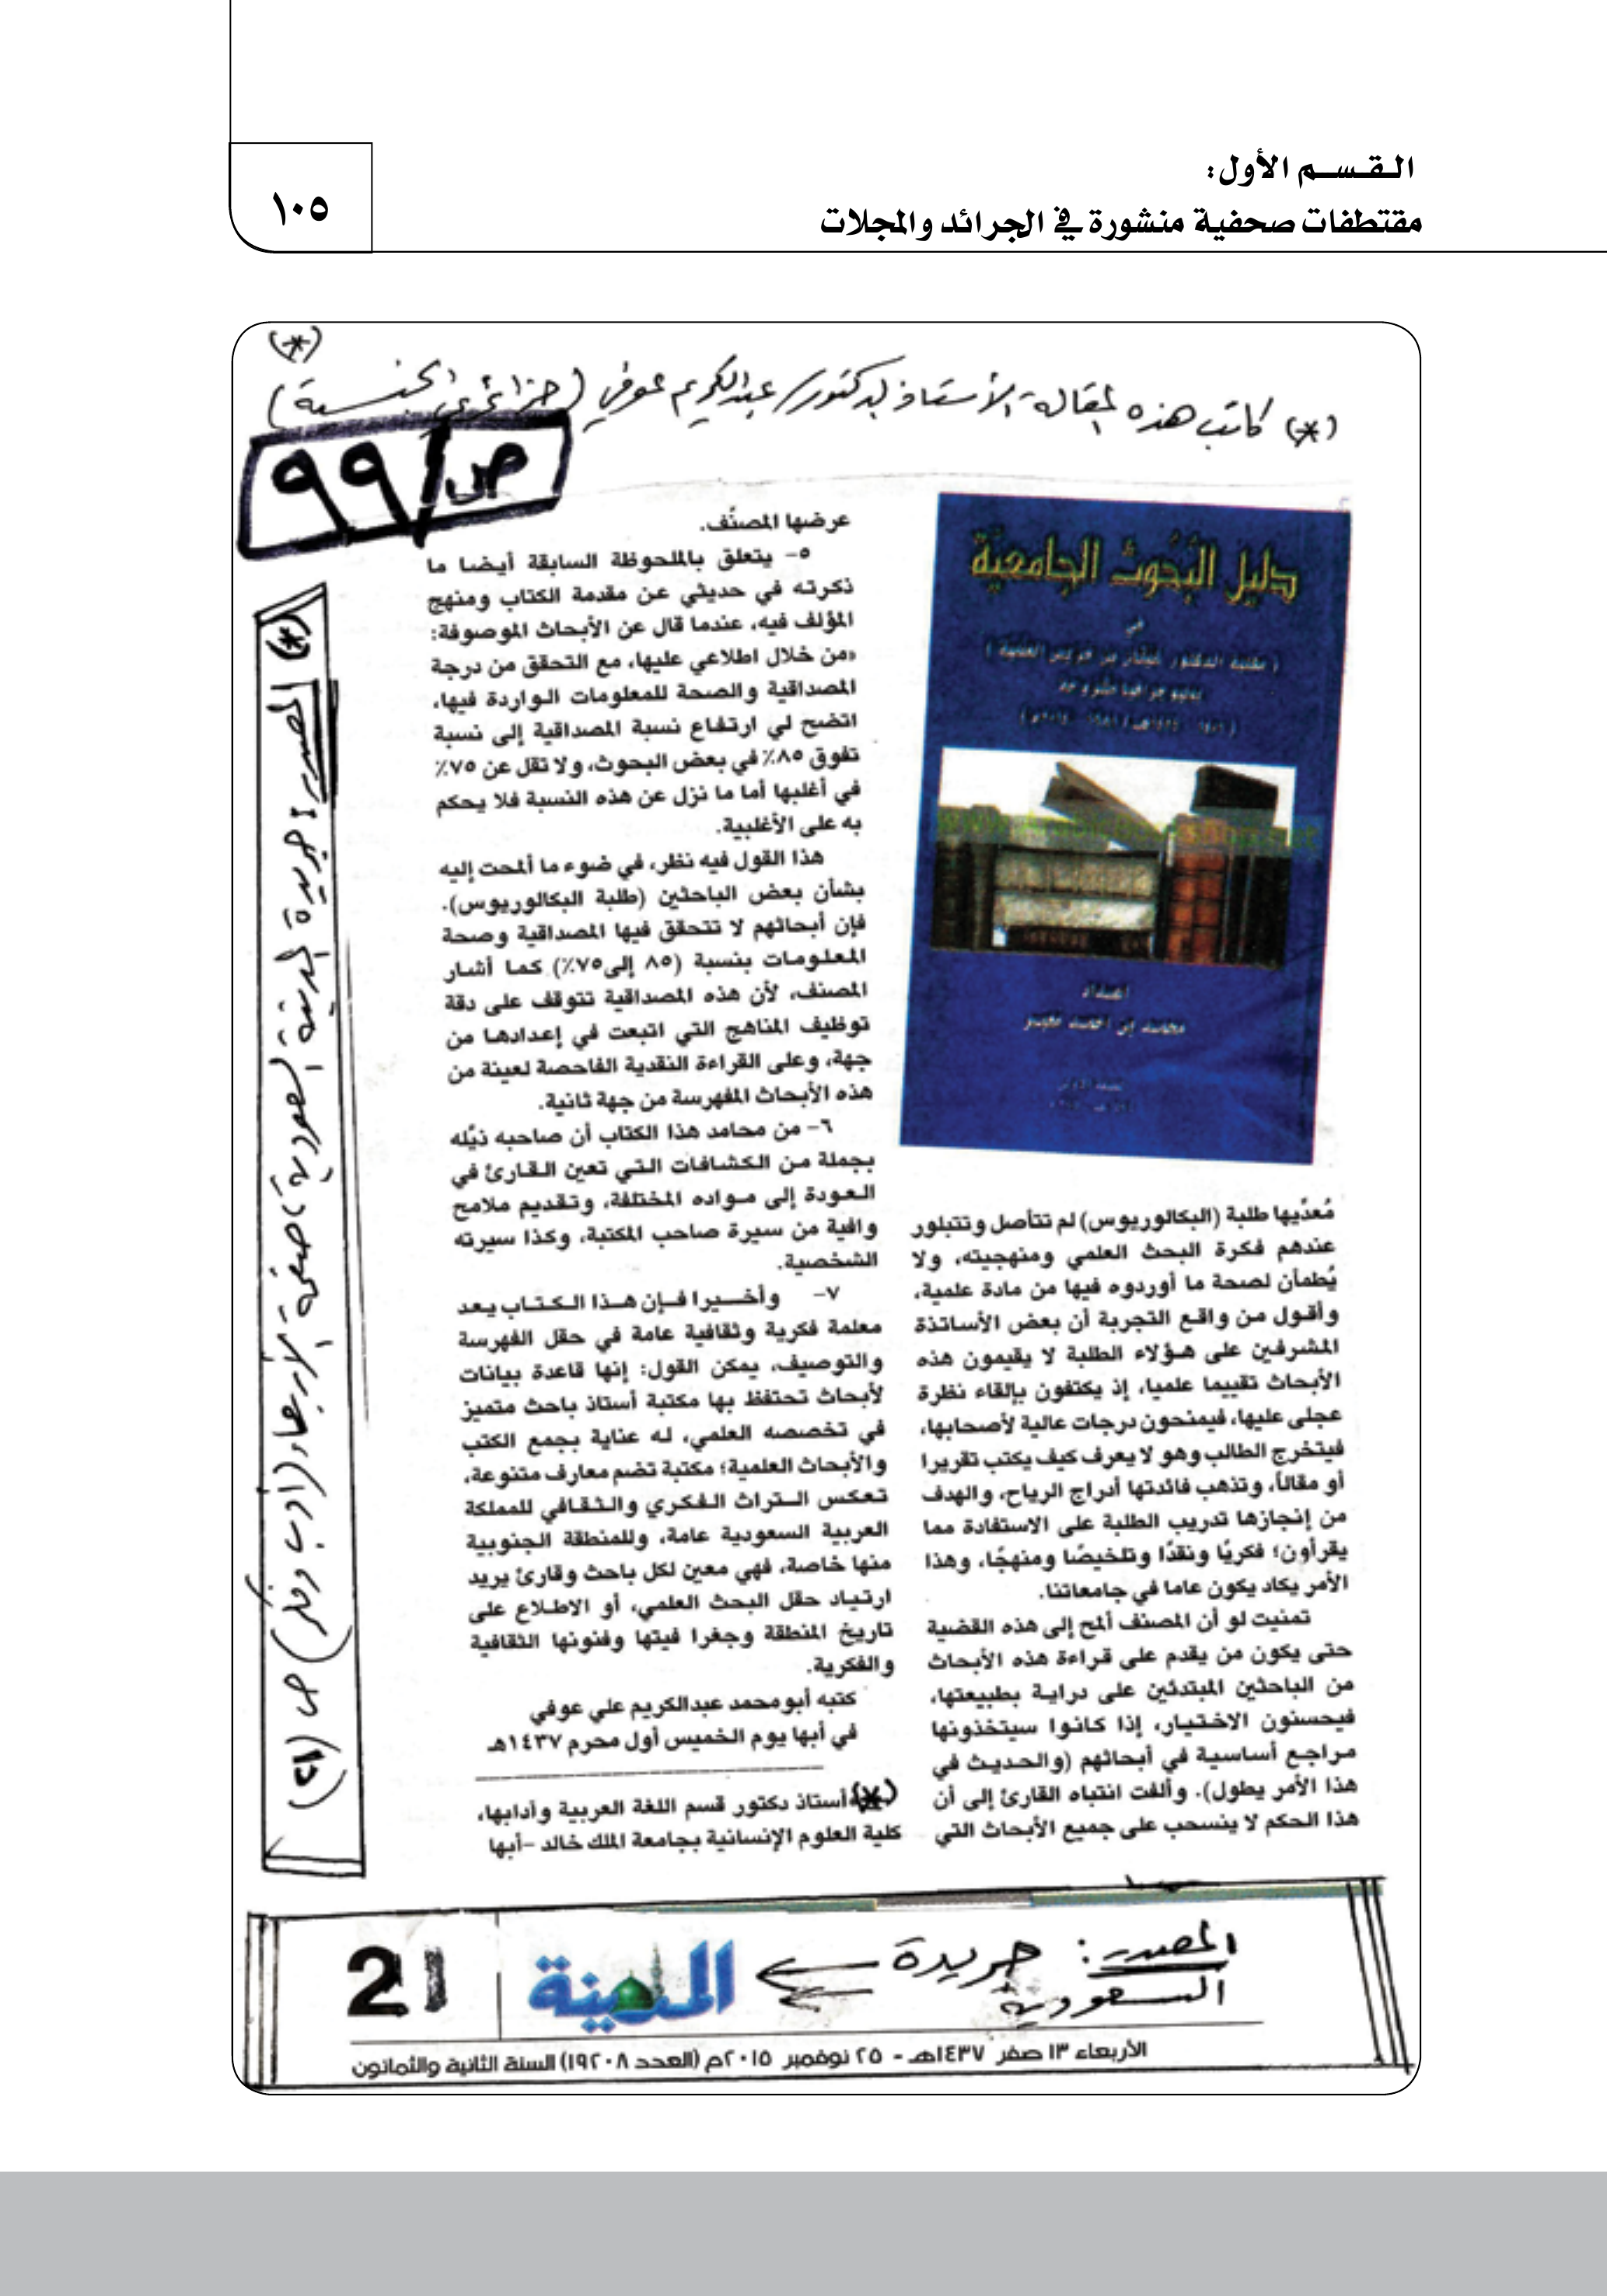 القسم الأول:
مقتطفات صحفية منشورة في الجرائد والمجلات
١٠٥
(*)
(*) كاتب هذه المقالة الأستاذ الدكتور/ عبدالكريم عوفي (جزائري الجنسية)
ص/٩٩
دليل البحوث الجامعية
في
إعداد
محمد بن أحمد معبر
مُعدّيها طلبة (البكالوريوس) لم تتأصل وتتبلور
عندهم فكرة البحث العلمي ومنهجيته، ولا
يُطمأن لصحة ما أوردوه فيها من مادة علمية،
وأقول من واقع التجربة أن بعض الأساتذة
المشرفين على هؤلاء الطلبة لا يقيمون هذه
الأبحاث تقييما علميا، إذ يكتفون بإلقاء نظرة
عجلى عليها، فيمنحون درجات عالية لأصحابها،
فيتخرج الطالب وهو لا يعرف كيف يكتب تقريرا
أو مقالاً، وتذهب فائدتها أدراج الرياح، والهدف
من إنجازها تدريب الطلبة على الاستفادة مما
يقرأون؛ فكريًا ونقدًا وتلخيصًا ومنهجًا، وهذا
الأمر يكاد يكون عاما في جامعاتنا.
تمنيت لو أن المصنف ألمح إلى هذه القضية
حتى يكون من يقدم على قراءة هذه الأبحاث
من الباحثين المبتدئين على دراية بطبيعتها،
فيحسنون الاختيار، إذا كانوا سيتخذونها
مراجع أساسية في أبحاثهم (والحديث في
هذا الأمر يطول). وألفت انتباه القارئ إلى أن
هذا الحكم لا ينسحب على جميع الأبحاث التي
عرضها المصنّف.
٥- يتعلق بالملحوظة السابقة أيضا ما
ذكرته في حديثي عن مقدمة الكتاب ومنهج
المؤلف فيه، عندما قال عن الأبحاث الموصوفة:
«من خلال اطلاعي عليها، مع التحقق من درجة
المصداقية والصحة للمعلومات الواردة فيها،
اتضح لي ارتفاع نسبة المصداقية إلى نسبة
تفوق ٨٥٪ في بعض البحوث، ولا تقل عن ٧٥٪
في أغلبها أما ما نزل عن هذه النسبة فلا يحكم
به على الأغلبية.
هذا القول فيه نظر، في ضوء ما ألمحت إليه
بشأن بعض الباحثين (طلبة البكالوريوس).
فإن أبحاثهم لا تتحقق فيها المصداقية وصحة
المعلومات بنسبة (٨٥ إلى٧٥٪) كما أشار
المصنف، لأن هذه المصداقية تتوقف على دقة
توظيف المناهج التي اتبعت في إعدادها من
جهة، وعلى القراءة النقدية الفاحصة لعينة من
هذه الأبحاث المفهرسة من جهة ثانية.
٦- من محامد هذا الكتاب أن صاحبه ذيّله
بجملة من الكشافات التي تعين القارئ في
العودة إلى مواده المختلفة، وتقديم ملامح
وافية من سيرة صاحب المكتبة، وكذا سيرته
الشخصية.
٧- وأخيرا فإن هذا الكتاب يعد
معلمة فكرية وثقافية عامة في حقل الفهرسة
والتوصيف، يمكن القول: إنها قاعدة بيانات
لأبحاث تحتفظ بها مكتبة أستاذ باحث متميز
في تخصصه العلمي، له عناية بجمع الكتب
والأبحاث العلمية؛ مكتبة تضم معارف متنوعة،
تعكس التراث الفكري والثقافي للمملكة
العربية السعودية عامة، وللمنطقة الجنوبية
منها خاصة، فهي معين لكل باحث وقارئ يريد
ارتياد حقل البحث العلمي، أو الاطلاع على
تاريخ المنطقة وجغرا فيتها وفنونها الثقافية
والفكرية.
كتبه أبو محمد عبدالكريم علي عوفي
في أبها يوم الخميس أول محرم ١٤٣٧هـ
(*) أستاذ دكتور قسم اللغة العربية وآدابها،
كلية العلوم الإنسانية بجامعة الملك خالد -أبها
(*) المصدر: جريدة المدينة السعودية، صفحة الأربعاء (أدب وفكر) ص (٢١)
المصدر: جريدة
السعودية
المدينة
21
الأربعاء ١٣ صفر ١٤٣٧هـ - ٢٥ نوفمبر ٢٠١٥م (العدد ١٩٢٠٨) السنة الثانية والثمانون